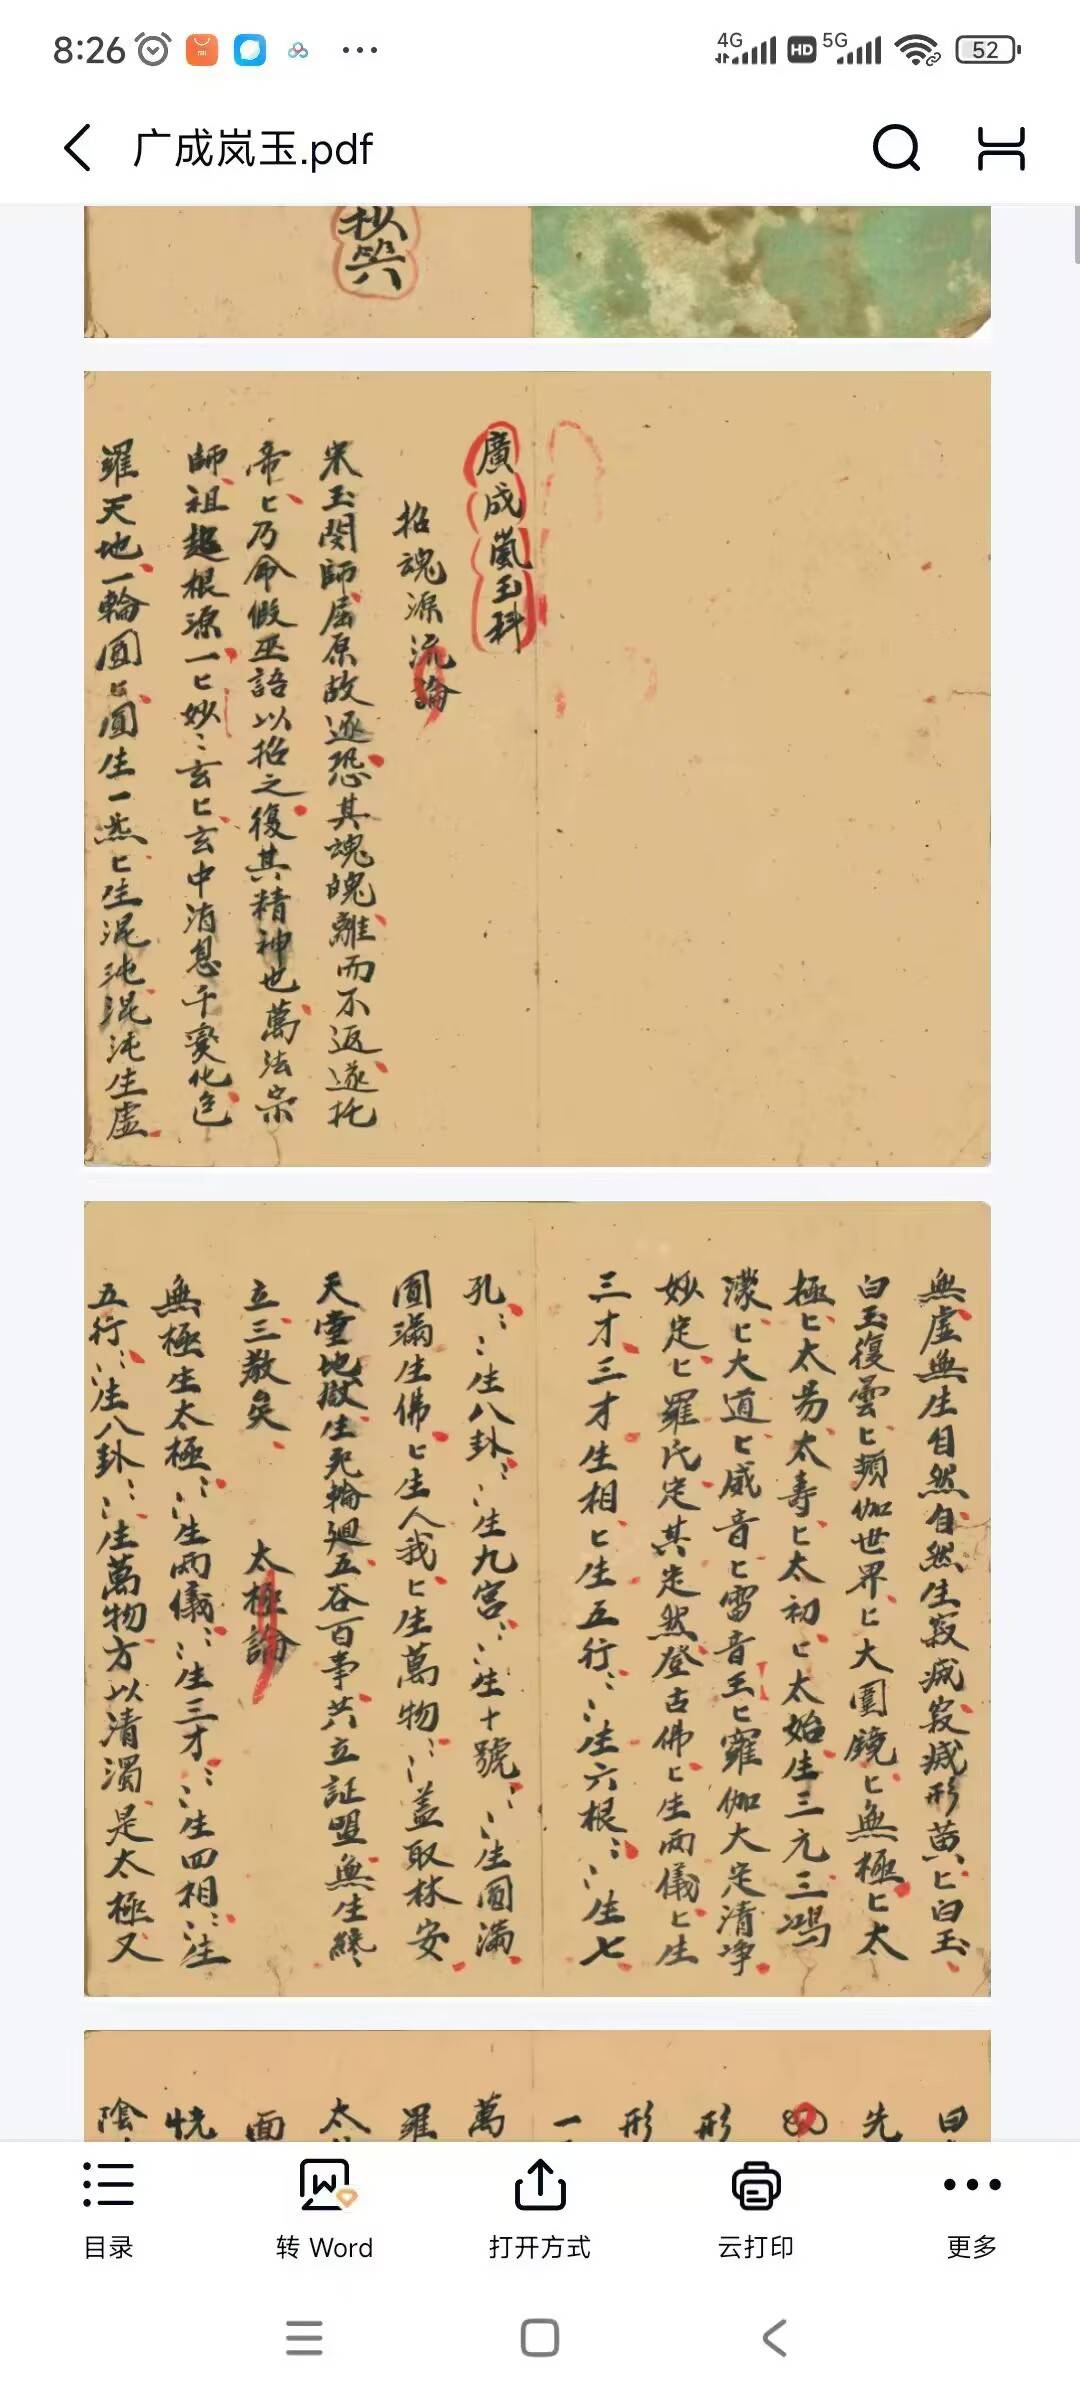 8:26
4G HD 5G 52
广成岚玉.pdf
廣成嵐玉科
招魂源流論
宋玉閔師屈原故逐恐其魂魄離而不返遂托
帝匕乃命假巫語以招之復其精神也萬法宗
師祖趨根源一匕妙〻玄匕玄中消息千變化包
羅天地一輪圓匕圓生一炁匕生混沌混沌生虛
無虛無生自然自然生寂滅寂滅形黄匕白玉
白玉復雲匕頻伽世界匕大圓鏡匕無極匕太
極匕太易太壽匕太初匕太始生三元三鴻
濛匕大道匕威音匕雷音王匕羅伽大定清净
妙定匕羅氏定其定然登古佛匕生兩儀匕生
三才三才生相匕生五行〻生六根〻生七
孔〻生八卦〻生九宫〻生十號〻生圓满
圓满生佛匕生人我匕生萬物〻蓋取林安
天堂地獄生死輪廻五谷百事共立証盟無生終
立三教矣
太極論
無極生太極〻生兩儀〻生三才〻生四相〻生
五行〻生八卦〻生萬物方以清濁是太極又
先
形
形
一
萬
羅
太
面
恍
陰
目录
转 Word
打开方式
云打印
更多